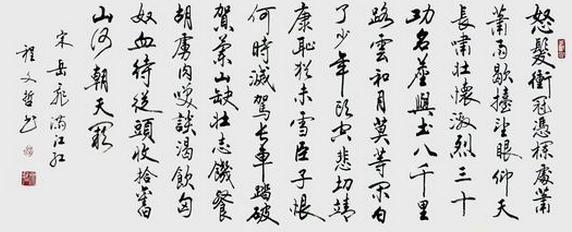 怒髮衝冠憑欄處蕭
蕭雨歇擡望眼仰天
長嘯壯懷激烈三十
功名塵與土八千里
路雲和月莫等閑白
了少年頭空悲切靖
康恥猶未雪臣子恨
何時滅駕長車踏破
賀蘭山缺壯志饑餐
胡虜肉笑談渴飲匈
奴血待從頭收拾舊
山河朝天闕
宋岳飛滿江紅
程文哲书